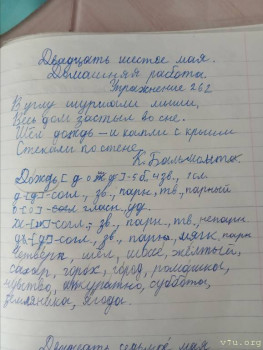 Двадцать шестое мая.
Домашняя работа.
Упражнение 262
В углу шуршали мыши,
Весь дом застыл во сне.
Шёл дождь – и капли с крыши
Стекали по стене.
К. Бальмонт.
Дождь [д о ж д'] - 5 б, 4 зв, 1 сл.
д - [д] - согл., зв., парн., тв., парный
о - [о] - гласн., уд.
ж - [ж] - согл., зв., парн., тв., непарн.
дь - [д'] - согл., зв., парн., мягк., парн.
Четверг, шёл, шёлк, жёлтый,
сахар, горох, город, ромашка,
чувство, аккуратно, суббота,
земляника, ягода.
Двадцать седьмое мая
vtu.org